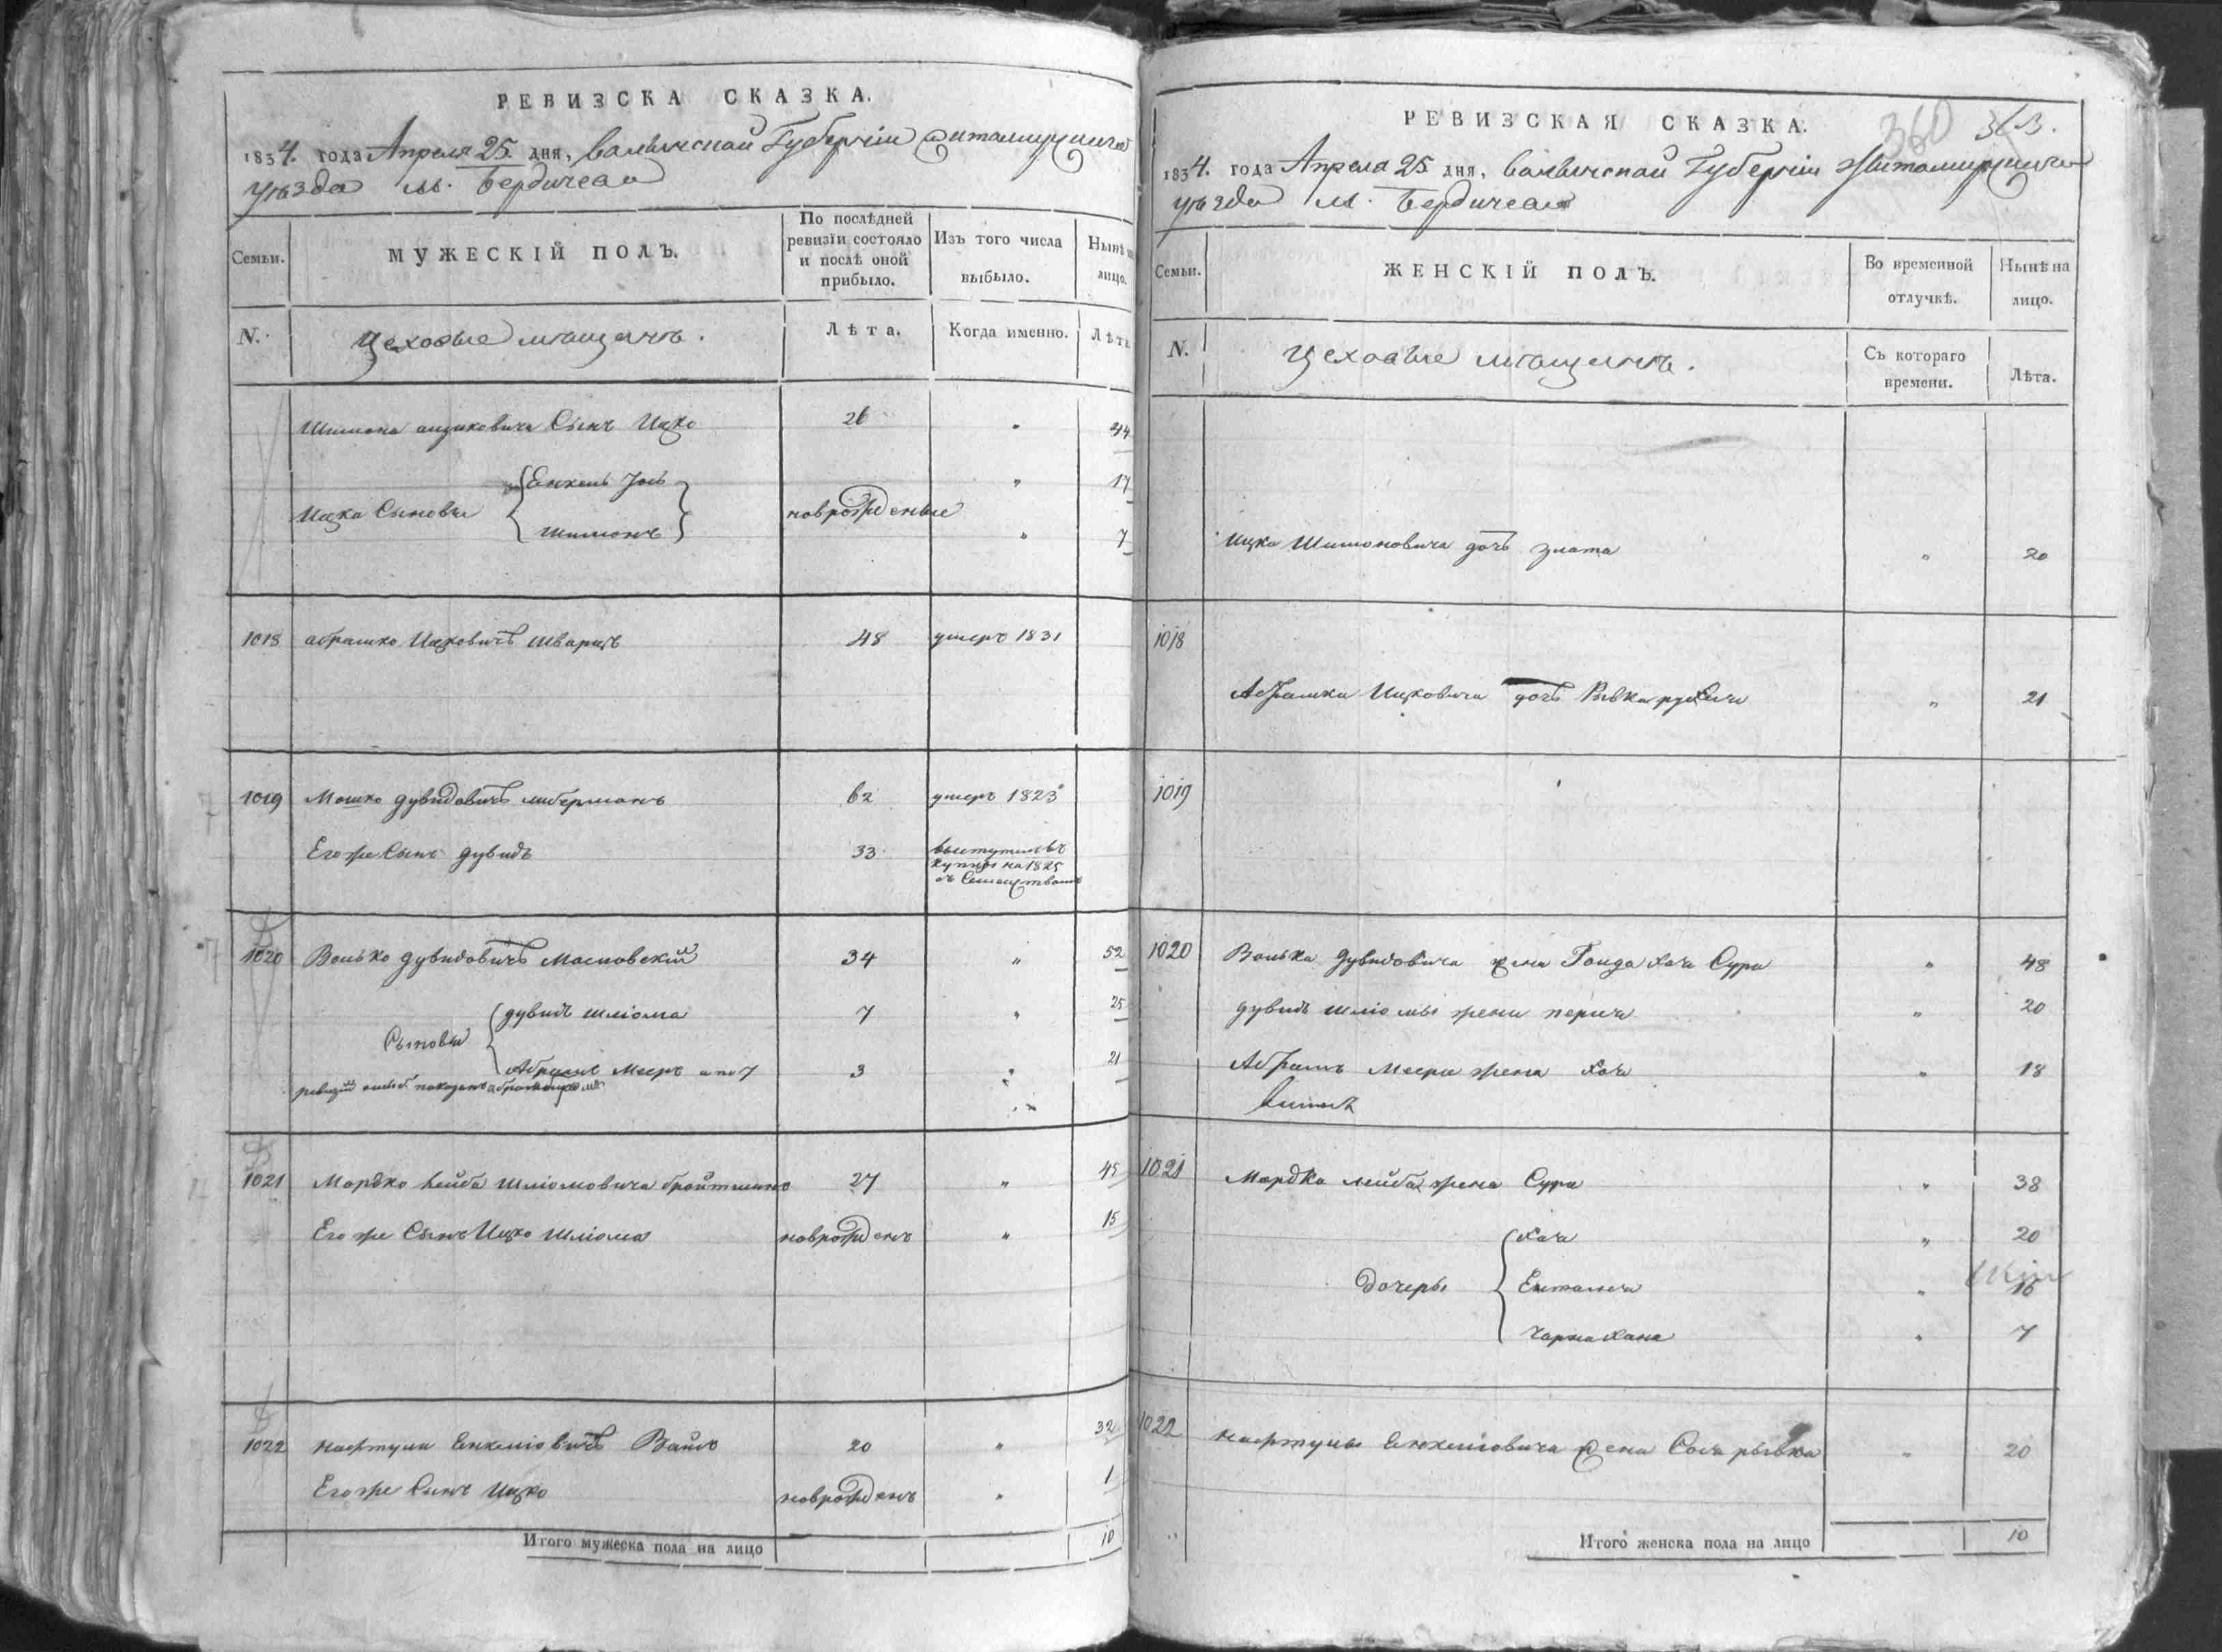 РЕВИЗСКА СКАЗКА.
1834. года Апреля 25. дня, Волынской Губерніи Житомирскаго
уѣзда м. Бердичева
Семьи.
МУЖЕСКІЙ ПОЛЪ.
По послѣдней ревизіи состояло и послѣ оной прибыло.
Изъ того числа выбыло.
Нынѣ на лицо.
N.
Цеховые мѣщанъ.
Лѣта.
Когда именно.
Лѣта
Шимона Ицковича Сынъ Ицко 26 " 44
Енкель Іось " 17
Ицка Сыновья новорожденые
Шимонъ " 7
1018 Абрашко Ицковичъ Шварцъ 48 умеръ 1831
1019 Мошко Дувидовичъ Либерманъ 62 умеръ 1823
Его же Сынъ Дувидъ 33 выступилъ въ
купцы на 1825
съ Семействомъ
1020 Волько Дувидовичъ Масловскій 34 " 52
Дувидъ Шліома 7 " 25
Сыновья
Абрамъ Мееръ а по 7 3 " 21
ревизіи показанъ
1021 Мордко Лейба Шліомовича Бройтманъ 27 " 45
Его же Сынъ Ицко Шліома новорожденъ " 15
1022 Нафтула Енкеліовичъ Вайсъ 20 " 32
Его же Сынъ Ицко новорожденъ " 1
Итого мужеска пола на лицо 10
РЕВИЗСКАЯ СКАЗКА.
360
1834. года Апреля 25 дня, Волынской Губерніи Житомирскаго
уѣзда м. Бердичева
Семьи.
ЖЕНСКІЙ ПОЛЪ.
Во временной отлучкѣ.
Нынѣ на лицо.
N.
Цеховые мѣщанъ.
Съ котораго времени.
Лѣта.
Ицка Шимоновича дочь Злата " 20
1018
Абрашка Ицковича дочь Рывка " 21
1019
1020 Волька Дувидовича жена Хая Сура " 48
Дувидъ Шліомы жена Перля " 20
Абрамъ Меера жена Хая " 18
1021 Мордка Лейба жена Сура " 38
Хая " 20
Дочеры Ента " 16
Чарна Хана " 7
1022 Нафтулы Енкеліовича жена Рывка " 20
Итого женска пола на лицо 10